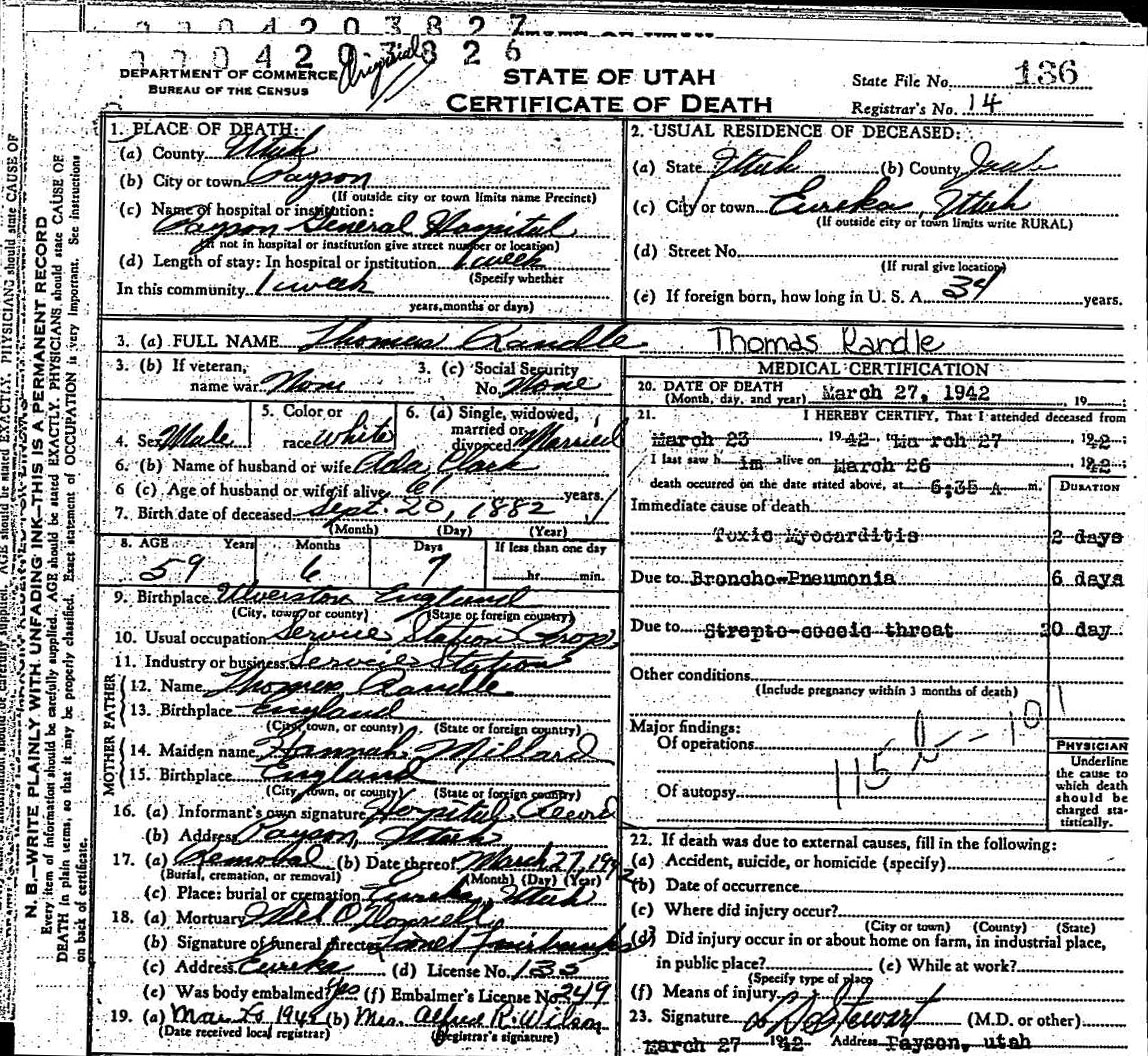 0004203827
0004203826
Original
DEPARTMENT OF COMMERCE
BUREAU OF THE CENSUS
STATE OF UTAH
CERTIFICATE OF DEATH
State File No. 136
Registrar's No. 14
N. B.—WRITE PLAINLY WITH UNFADING INK—THIS IS A PERMANENT RECORD
Every item of information should be carefully supplied. AGE should be stated EXACTLY. PHYSICIANS should state CAUSE OF
DEATH in plain terms, so that it may be properly classified. Exact statement of OCCUPATION is very important. See instructions
on back of certificate.
1. PLACE OF DEATH:
(a) County Utah
(b) City or town Payson
(If outside city or town limits name Precinct)
(c) Name of hospital or institution:
Payson General Hospital
(If not in hospital or institution give street number or location)
(d) Length of stay: In hospital or institution 1 week
(Specify whether
In this community 1 week
years, months or days)
2. USUAL RESIDENCE OF DECEASED:
(a) State Utah (b) County Juab
(c) City or town Eureka, Utah
(If outside city or town limits write RURAL)
(d) Street No.
(If rural give location)
(e) If foreign born, how long in U. S. A. 39 years.
3. (a) FULL NAME Thomas Randle Thomas Randle
3. (b) If veteran,
name war None
3. (c) Social Security
No. None
4. Sex Male
5. Color or
race White
6. (a) Single, widowed,
married or
divorced Married
6. (b) Name of husband or wife Ada Clark
6 (c) Age of husband or wife if alive 61 years.
7. Birth date of deceased Sept. 20, 1882
(Month) (Day) (Year)
8. AGE Years Months Days If less than one day
59 6 7 hr. min.
9. Birthplace Ulverston England
(City, town, or county) (State or foreign country)
10. Usual occupation Service Station Prop
11. Industry or business Service Station
FATHER
12. Name Thomas Randle
13. Birthplace England
(City, town, or county) (State or foreign country)
MOTHER
14. Maiden name Hannah Millard
15. Birthplace England
(City, town, or county) (State or foreign country)
16. (a) Informant's own signature Hospital Record
(b) Address Payson, Utah
17. (a) Removal (b) Date thereof March 27, 1942
(Burial, cremation, or removal) (Month) (Day) (Year)
(c) Place: burial or cremation Eureka, Utah
18. (a) Mortuary
(b) Signature of funeral director Fairbanks
(c) Address Eureka (d) License No. 135
(e) Was body embalmed? Yes (f) Embalmer's License No. 249
19. (a) Mar 1942 (b) Mrs. Alfred R. Wilson
(Date received local registrar) (Registrar's signature)
MEDICAL CERTIFICATION
20. DATE OF DEATH March 27, 1942
(Month, day, and year) 19
21. I HEREBY CERTIFY, That I attended deceased from
March 23 1942 to March 27 1942
I last saw h im alive on March 26 1942
death occurred on the date stated above, at 6:35 A m.
DURATION
Immediate cause of death
Toxic Myocarditis 2 days
Due to Broncho-Pneumonia 6 days
Due to Strepto-coccic throat 20 day
Other conditions
(Include pregnancy within 3 months of death)
Major findings:
Of operations
Of autopsy
115
101
PHYSICIAN
Underline
the cause to
which death
should be
charged sta-
tistically.
22. If death was due to external causes, fill in the following:
(a) Accident, suicide, or homicide (specify)
(b) Date of occurrence
(c) Where did injury occur?
(City or town) (County) (State)
(d) Did injury occur in or about home on farm, in industrial place,
in public place? (e) While at work?
(Specify type of place)
(f) Means of injury
23. Signature Stewart (M.D. or other)
March 27 1942 Address Payson, utah